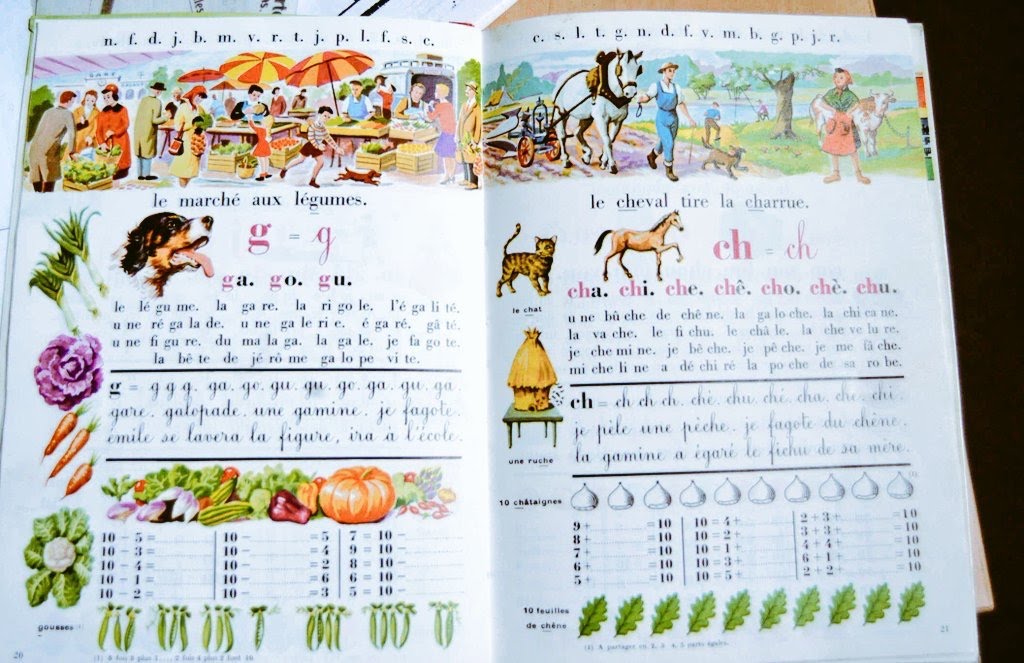 n. f. d. j. b. m. v. r. t. j. p. l. f. s. c.
GARE
le marché aux légumes.
g = g
ga. go. gu.
le lé gu me. la ga re. la ri go le. l'é ga li té.
u ne ré ga la de. u ne ga le ri e. é ga ré. gâ té.
u ne fi gu re. du ma la ga. la ga le. je fa go te.
la bê te de jé rô me ga lo pe vi te.
g = g g g. ga. go. gu. gu. go. ga. gu. ga.
gare. galopade. une gamine. je fagote.
émile se lavera la figure, ira à l'école.
10 - 5 =
10 - 3 =
10 - 4 =
10 - 1 =
10 - 2 =
10 - =5
10 - =4
10 - =2
10 - =6
10 - =3
7 = 10 -
9 = 10 -
8 = 10 -
6 = 10 -
5 = 10 -
gousses
20
c. s. l. t. g. n. d. f. v. m. b. g. p. j. r.
le cheval tire la charrue.
ch = ch
le chat
cha. chi. che. chê. cho. chè. chu.
u ne bû che de chê ne. la ga lo che. la chi ca ne.
la va che. le fi chu. le châ le. la che ve lu re.
je che mi ne. je bê che. je pê che. je me fâ che.
mi che li ne a dé chi ré la po che de sa ro be.
une ruche
ch = ch ch ch. ché. chu. ché. cha. che. chi.
je pèle une pêche. je fagote du chêne.
la gamine a égaré le fichu de sa mère.
10 châtaignes
(1)
9 + =10
8 + =10
7 + =10
6 + =10
5 + =10
10 = 4 +
10 = 2 +
10 = 1 +
10 = 3 +
10 = 5 +
2 + 3 + =10
3 + 3 + =10
4 + 4 + =10
6 + 1 + =10
2 + 2 + =10
10 feuilles
de chêne
A partager en 2, 3, 4, 5 parts égales.
21